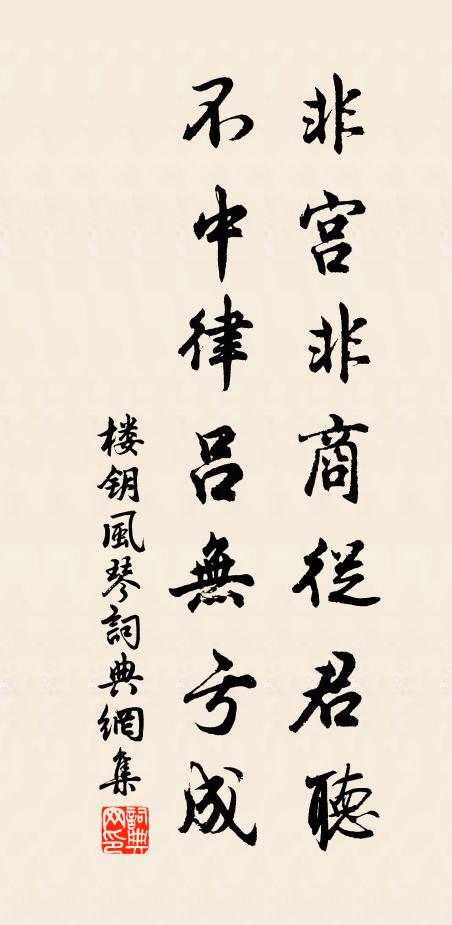 非宫非商從君聽
不中律吕無亏成
楼钥風琴詞典網集
詞典
网印